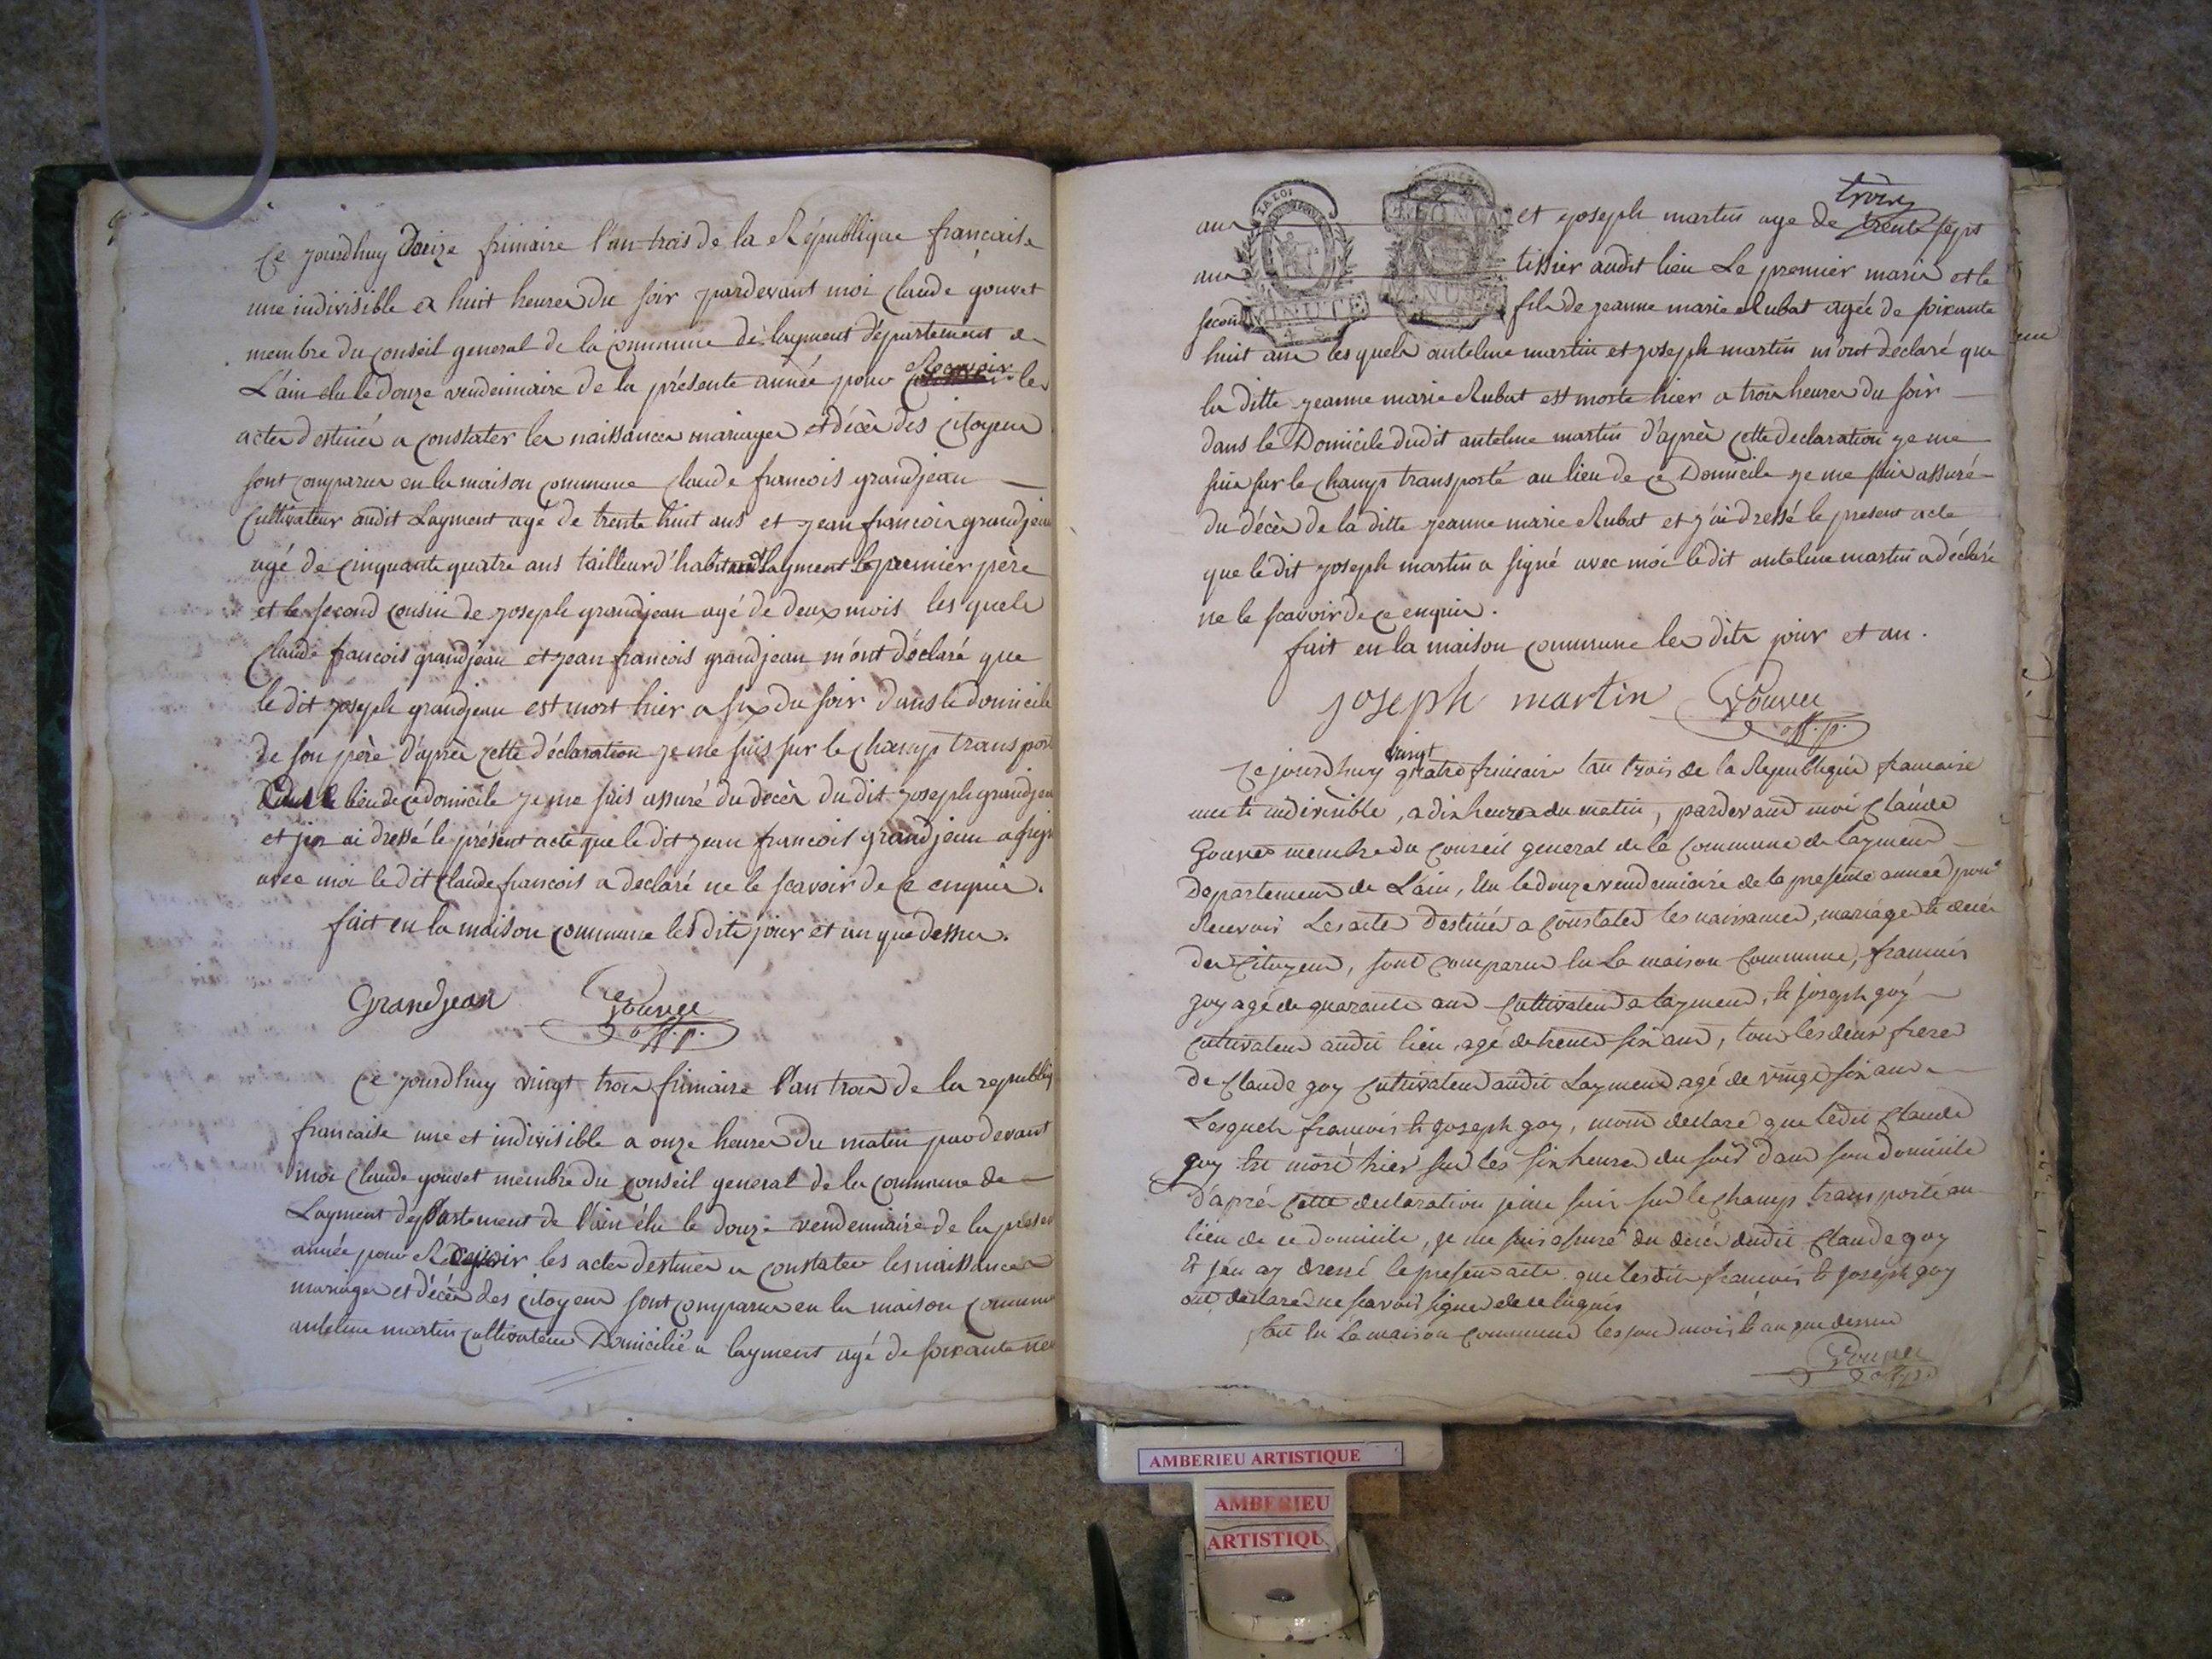 Ce jourdhuy treize frimaire l'an trois de la République francaise
une indivisible a huit heures du soir pardevant moi claude gouvet
membre du conseil general de la commune de layment département de
L'ain elu le douze vendemiaire de la présente année pour Recevoir les
actes destinés a constater les naissances mariages et décès des citoyens
sont comparus en la maison commune claude francois grandjean
Cultivateur audit Layment agé de trente huit ans et jean francois grandjean
agé de cinquante quatre ans tailleur d'habit audit layment le premier père
et le second cousin de joseph grandjean agé de deux mois les quels
claude francois grandjean et jean francois grandjean m'ont déclaré que
le dit joseph grandjean est mort hier a six du soir dans le domicile
de son père d'après cette déclaration je me suis sur le champ transport
lieu de ce domicile je me suis assuré du décès du dit joseph grandjean
et j'en ai dressé le présent acte que le dit jean francois grandjean a sign
avec moi le dit claude francois a declaré ne le scavoir de ce enquis.
fait en la maison commune les dits jour et an que dessus.
Grandjean Gouvet
off. p.
Ce jourdhuy vingt trois frimaire l'an trois de la republiq
francaise une et indivisible a onze heures du matin pardevant
moi claude gouvet membre du conseil general de la commune de
Layment département de l'ain élu le douze vendemiaire de la présen
année pour Recevoir les actes destinés a constater les naissances
mariages et décès des citoyens sont comparus en la maison commune
antelme martin cultivateur Domicilié a layment agé de soixante neu
LA LOI
MINUTE
MINUTE
ans et joseph martin age de trois
trente sept
ans tissier audit lieu Le premier marie et le
second fils de jeanne marie Rubat agée de soixante
huit ans les quels antelme martin et joseph martin m'ont déclaré que
la ditte jeanne marie Rubat est morte hier a trois heures du soir
dans le Domicile dudit antelme martin d'après cette declaration je me
suis sur le champ transporté au lieu de ce Domicile je me suis assuré
du décès de la ditte jeanne marie Rubat et j'ai dressé le present acte
que le dit joseph martin a signé avec moi le dit antelme martin a déclaré
ne le scavoir de ce enquis.
fait en la maison commune les dits jour et an.
joseph martin Gouvet
off. p.
Ce jourdhuy vingt quatre frimaire l'an trois de la Republique francaise
une et indivisible, a dix heures du matin, pardevant moi Claude
Gouvet membre du conseil general de la commune de layment
Departement de L'ain, Elu le douze vendemiaire de la presente année pour
Recevoir Les actes destinés a constater les naissances, mariages et décès
des Citoyens, sont comparus en La maison Commune, francois
goy agé de quarante ans Cultivateur a layment, et joseph goy
cultivateur audit lieu, agé de trente six ans, tous les deux freres
de Claude goy Cultivateur audit Layment agé de vingt six ans
Lesquels francois et joseph goy, mont declaré que ledit Claude
goy est mort hier sur les six heures du soir dans son domicile
d'aprés cette declaration je me suis sur le champ transporté au
lieu de ce domicile, je me suis assuré du décès dudit Claude goy
et j'en ay dressé le present acte que lesdits francois et joseph goy
ont declaré ne scavoir signer de ce enquis
fait en la maison commune les jour mois et an que dessus
Gouvet
off. p.
AMBERIEU ARTISTIQUE
AMBERIEU
ARTISTIQU